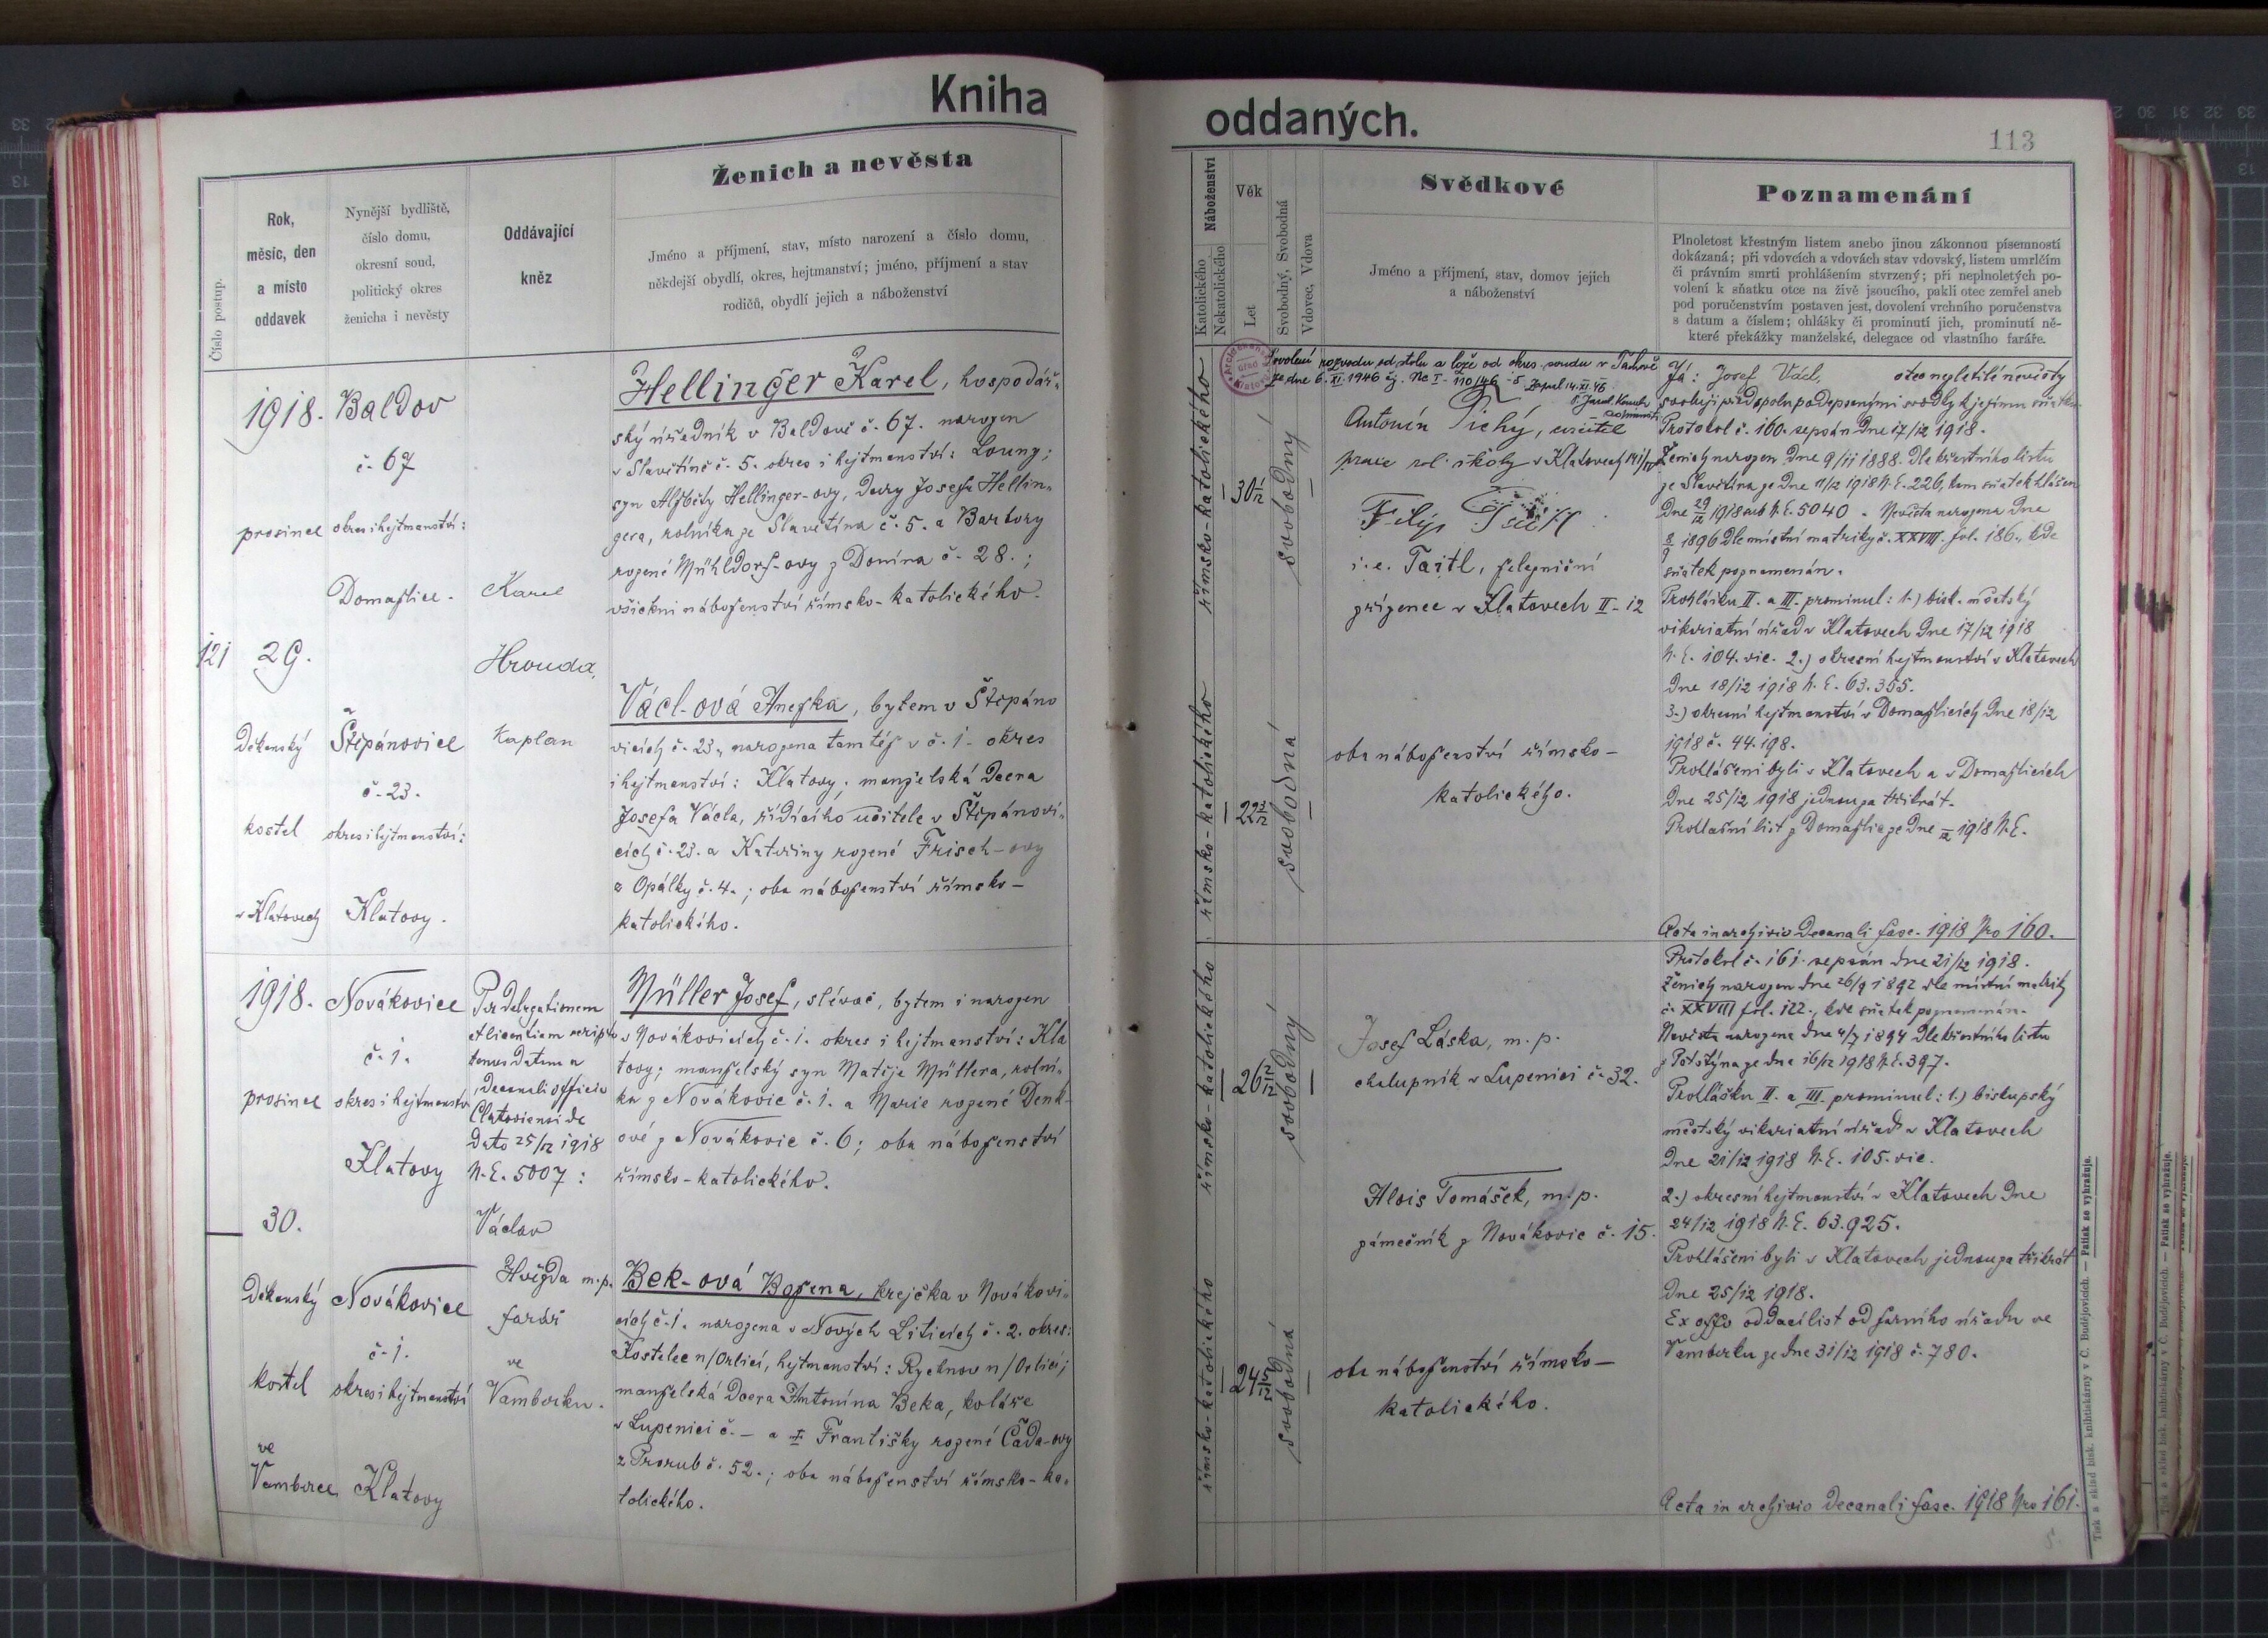 Kniha
oddaných.
113
Číslo postup.
Rok,
měsíc, den
a místo
oddavek
Nynější bydliště,
číslo domu,
okresní soud,
politický okres
ženicha i nevěsty
Oddávající
kněz
Ženich a nevěsta
Jméno a příjmení, stav, místo narození a číslo domu,
někdejší obydlí, okres, hejtmanství; jméno, příjmení a stav
rodičů, obydlí jejich a náboženství
Náboženství
Katolického
Nekatolického
Věk
Let
Svobodný, Svobodná
Vdovec, Vdova
Svědkové
Jméno a příjmení, stav, domov jejich
a náboženství
Poznamenání
Plnoletost křestným listem anebo jinou zákonnou písemností
dokázaná; při vdovcích a vdovách stav vdovský, listem umrlčím
či právním smrti prohlášením stvrzený; při neplnoletých po-
volení k sňatku otce na živě jsoucího, pakli otec zemřel aneb
pod poručenstvím postaven jest, dovolení vrchního poručenstva
s datum a číslem; ohlášky či prominutí jich, prominutí ně-
které překážky manželské, delegace od vlastního faráře.
121
1918.
prosince
29.
Děkanský
kostel
v Klatovech
Baldov
č. 67
okres i hejtmanství:
Domažlice.
Štěpánovice
č. 23.
okres i hejtmanství:
Klatovy.
Karel
Hrouda,
kaplan
Hellinger Karel, hospodář-
ský úředník v Baldově č. 67. narozen
v Slavětíně č. 5. okres i hejtmanství: Louny;
syn Alžběty Hellinger-ovy, dcery Josefa Hellin-
gera, rolníka ze Slavětína č. 5. a Barbory
rozené Mühldorf-ovy z Donína č. 28.;
všichni náboženství římsko-katolického.
Václ-ová Anežka, bytem v Štěpáno
vicích č. 23., narozena tamtéž v č. 1. okres
i hejtmanství: Klatovy; manželská dcera
Josefa Václa, řídícího učitele v Štěpánovi-
cích č. 23. a Kateřiny rozené Frisch-ovy
z Opálky č. 4.; oba náboženství římsko-
katolického.
římsko-katolického
30 1/12
svobodný
římsko-katolického
22 3/12
svobodná
Povolení rozvodu od stolu a lože od okres. soudu v Tachově
ze dne 6. XI. 1946 čj. Nc I - 110/46 - 5
Antonín Tichý, učitel
prac. rol. školy v Klatovech
Filip
i. e. Taitl, železniční
zřízenec v Klatovech II-12
oba náboženství římsko-
katolického.
Já: Josef Václ, otec nezletilé nevěsty
svoluji před spolupodepsanými svědky k jejímu sňatku.
Protokol č. 160. sepsán dne 17/12 1918.
Ženich narozen dne 9/11 1888. Dle křestního listu
ze Slavětína ze dne 11/12 1918 N. E. 226, kam sňatek hlášen
dne 29/12 1918 sub N. E. 5040. Nevěsta narozena dne
8/9 1896 dle místní matriky č. XXVIII. fol. 186., kde
sňatek poznamenán.
Prohlášku II. a III. prominul: 1.) bisk. městský
vikariatní úřad v Klatovech dne 17/12 1918
N. E. 104. vic. 2.) okresní hejtmanství v Klatovech
dne 18/12 1918 N. E. 63.355.
3.) okresní hejtmanství v Domažlicích dne 18/12
1918 č. 44.198.
Prohlášeni byli v Klatovech a v Domažlicích
dne 25/12 1918 jednou za třikrát.
Prohlašní list z Domažlic ze dne 1918 N. E.
Acta in archivio Decanali fasc. 1918 Nro 160.
1918.
prosince
30.
Děkanský
kostel
ve
Vamberce
Novákovice
č. 1.
okres i hejtmanství
Klatovy
Novákovice
č. 1.
okres i hejtmanství
Klatovy
Per delegationem
et licentiam scripto
tenus datam a
Decanali officio
Clatoviensi de
dato 25/12 1918
N. E. 5007:
Václav
Hvězda m. p.
farář
ve
Vamberku.
Müller Josef, slévač, bytem i narozen
v Novákovicích č. 1. okres i hejtmanství: Kla
tovy; manželský syn Matěje Müllera, rolní-
ka z Novákovic č. 1. a Marie rozené Denk-
ové z Novákovic č. 6; oba náboženství
římsko-katolického.
Bek-ová Božena, krejčka v Novákovi-
cích č. 1. narozena v Nových Liticích č. 2. okres:
Kostelec n/Orlicí, hejtmanství: Rychnov n/Orlicí;
manželská dcera Antonína Beka, koláře
v Lupenici č. - a Františky rozené Čada-ovy
z Prorub č. 52.; oba náboženství římsko-ka-
tolického.
římsko-katolického
26
svobodný
římsko-katolického
24 5/12
svobodná
Josef Láska, m. p.
chalupník v Lupenici č. 32.
Alois Tomášek, m. p.
zámečník z Novákovic č. 15.
oba náboženství římsko-
katolického.
Protokol č. 161. sepsán dne 21/12 1918.
Ženich narozen dne 26/9 1892 dle místní matriky
č. XXVIII fol. 122., kde sňatek poznamenán.
Nevěsta narozena dne 4/7 1894 dle křestního listu
z Potštýna ze dne 16/12 1918 N. E. 397.
Prohlášku II. a III. prominul: 1.) biskupský
městský vikariatní úřad v Klatovech
dne 21/12 1918 N. E. 105. vic.
2.) okresní hejtmanství v Klatovech dne
24/12 1918 N. E. 63.925.
Prohlášeni byli v Klatovech jednou za třikrát
dne 25/12 1918.
Ex offo oddací list od farního úřadu ve
Vamberku ze dne 31/12 1918 č. 780.
Acta in archivio Decanali fasc. 1918 Nro 161.
Tisk a sklad bisk. knihtiskárny v Č. Budějovicích. — Patisk se vyhražuje.